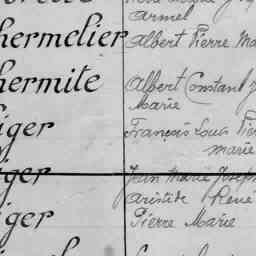 Armel
hermelier Albert Pierre Ma
hermite Albert Constant J
Marie
iger François Louis Pier
marie
ger Jean Marie Joseph
Aristide René
iger Pierre Marie